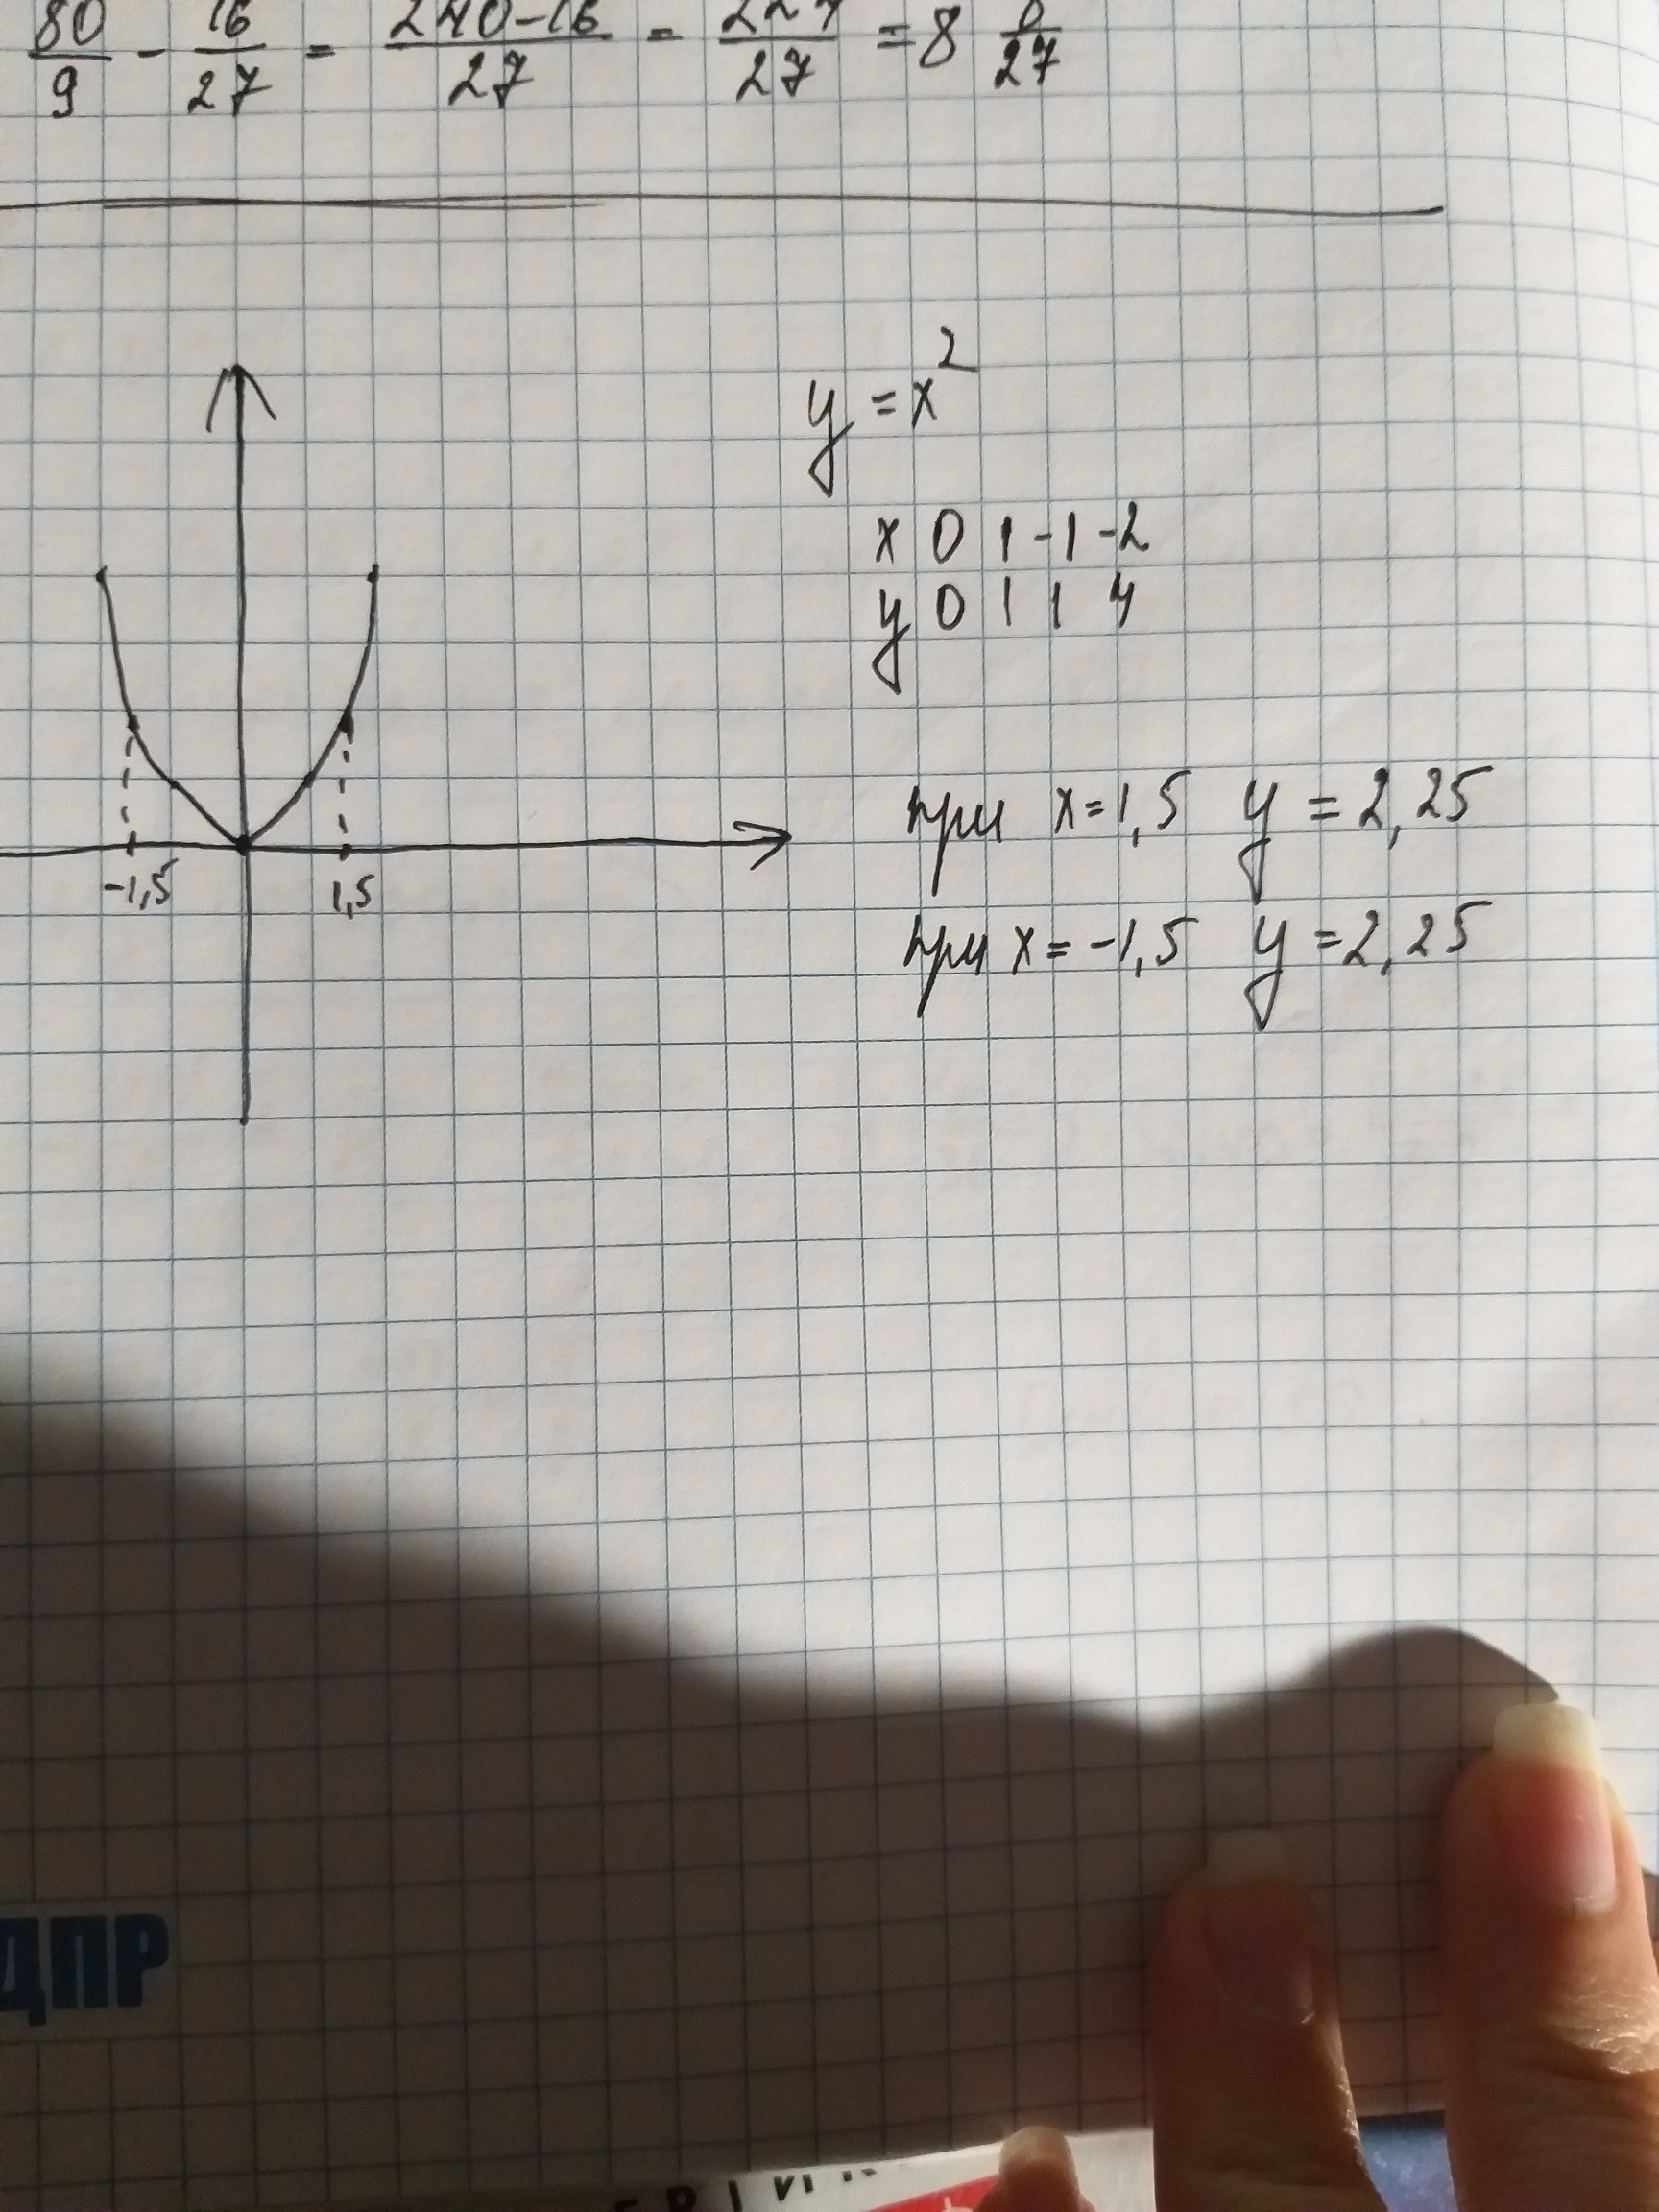 80/9 - 16/27 = 240-16/27 = 224/27 = 8 8/27
y = x²
x 0 1 -1 -2
y 0 1 1 4
-1,5 1,5
при x=1,5 y = 2,25
при x = -1,5 y = 2,25
ДПР